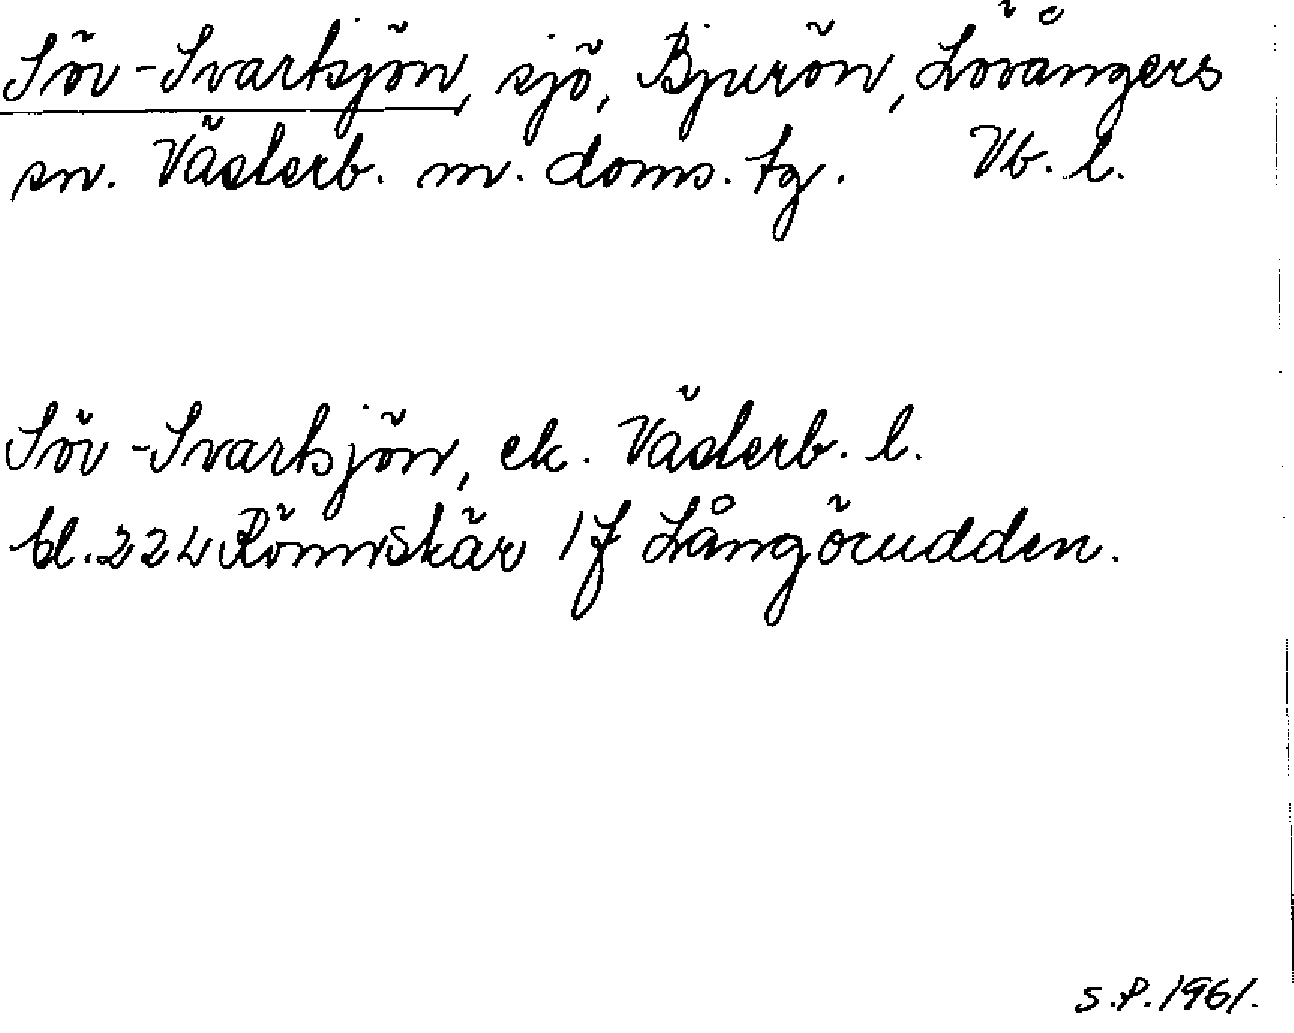 Söv-Svartsjön, sjö, Bjurön, Lövångers
sn. Västerb. m. doms. tg. Vb. l.
Söv-Svartsjön, ek. Västerb. l.
bl. 224 Rönnskär 1f Långörudden.
S.P. 1961.